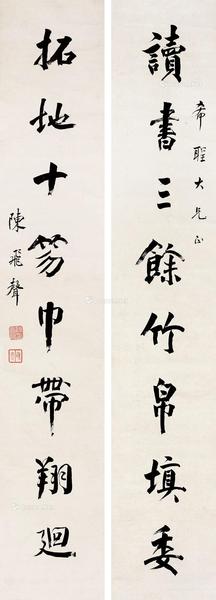 希聖大兄正
讀書三餘竹帛填委
拓地十笏巾帶翔迴
陳飛聲